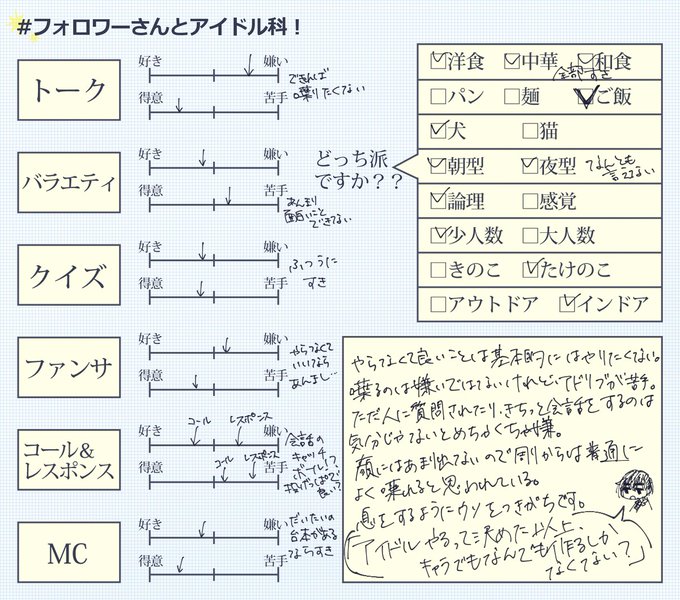 #フォロワーさんとアイドル科!
トーク
好き
嫌い
得意
苦手
できれば
喋りたくない
バラエティ
好き
嫌い
得意
苦手
あんまり
面白いこと
できてない
クイズ
好き
嫌い
得意
苦手
ふつうに
すき
ファンサ
好き
嫌い
得意
苦手
やらなくて
いいなら
あんまし…
コール&
レスポンス
好き
嫌い
コール
レスポンス
得意
苦手
コール
レスポンス
会話の
キャッチ
ボール!?
投げっぱで
良い?
MC
好き
嫌い
得意
苦手
だいたいの
台本がある
ならすき
どっち派
ですか??
洋食 中華 和食
全部すき
パン 麺 ご飯
犬 猫
朝型 夜型
なんとも
言えない
論理 感覚
少人数 大人数
きのこ たけのこ
アウトドア インドア
やらなくて良いことは基本的にはやりたくない。
喋るのは嫌いではないけれど、アドリブが苦手。
ただ人に質問されたり、きちっと会話をするのは
気分じゃないとめちゃくちゃ嫌。
顔にはあまり出てないので周りからは普通に
よく喋れると思われている。
息をするようにウソをつきがちです。
アイドルやるって決めた以上、
キャラでもなんでも作るしか
なくてない?